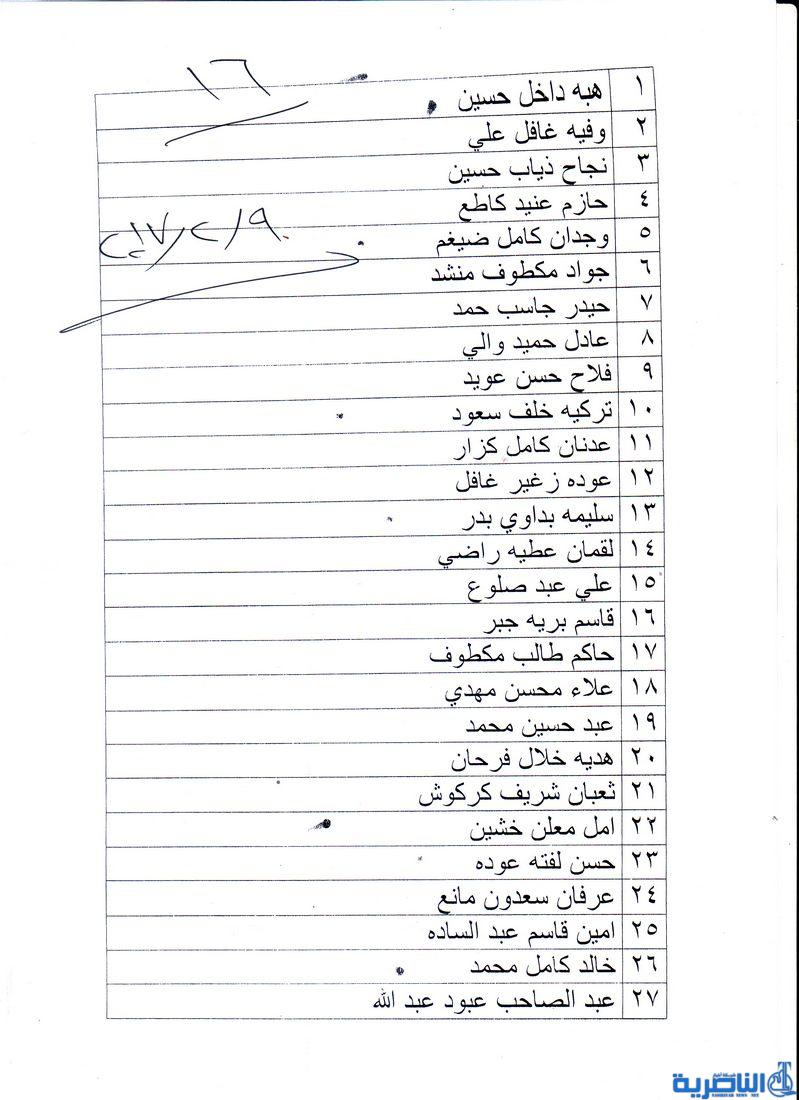 ١٦
١ هبه داخل حسين
٢ وفيه غافل علي
٣ نجاح ذياب حسين
٤ حازم عنيد كاطع
٢٠١٧/٢/٩
٥ وجدان كامل ضيغم
٦ جواد مكطوف منشد
٧ حيدر جاسب حمد
٨ عادل حميد والي
٩ فلاح حسن عويد
١٠ تركيه خلف سعود
١١ عدنان كامل كزار
١٢ عوده زغير غافل
١٣ سليمه بداوي بدر
١٤ لقمان عطيه راضي
١٥ علي عبد صلوع
١٦ قاسم بريه جبر
١٧ حاكم طالب مكطوف
١٨ علاء محسن مهدي
١٩ عبد حسين محمد
٢٠ هديه خلال فرحان
٢١ ثعبان شريف كركوش
٢٢ امل معلن خشين
٢٣ حسن لفته عوده
٢٤ عرفان سعدون مانع
٢٥ امين قاسم عبد الساده
٢٦ خالد كامل محمد
٢٧ عبد الصاحب عبود عبد الله
شبكة اخبار
الناصرية
NASIRIYAH NEWS NET